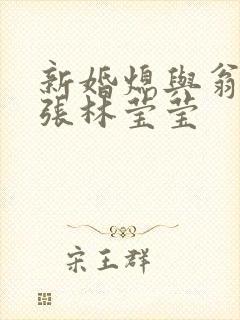 新婚媳與翁
張林莹莹
宋王群